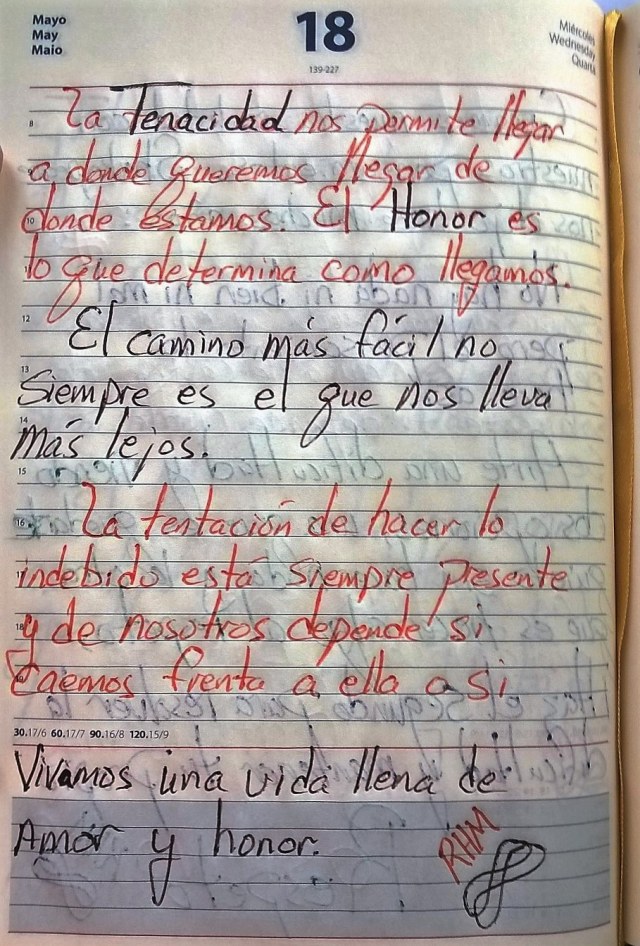 Mayo
May
Maio
18
139-227
Miércoles
Wednesday
Quarta
8
La Tenacidad nos permite llegar
a donde queremos llegar de
10
donde estamos. El Honor es
lo que determina como llegamos.
12
El camino más fácil no
13
Siempre es el que nos lleva
14
más lejos.
15
16
La tentación de hacer lo
indebido está siempre presente
18
y de nosotros depende si
caemos frenta a ella o si
30.17/6 60.17/7 90.16/8 120.15/9
Vivamos una vida llena de
Amor y honor.
RHM